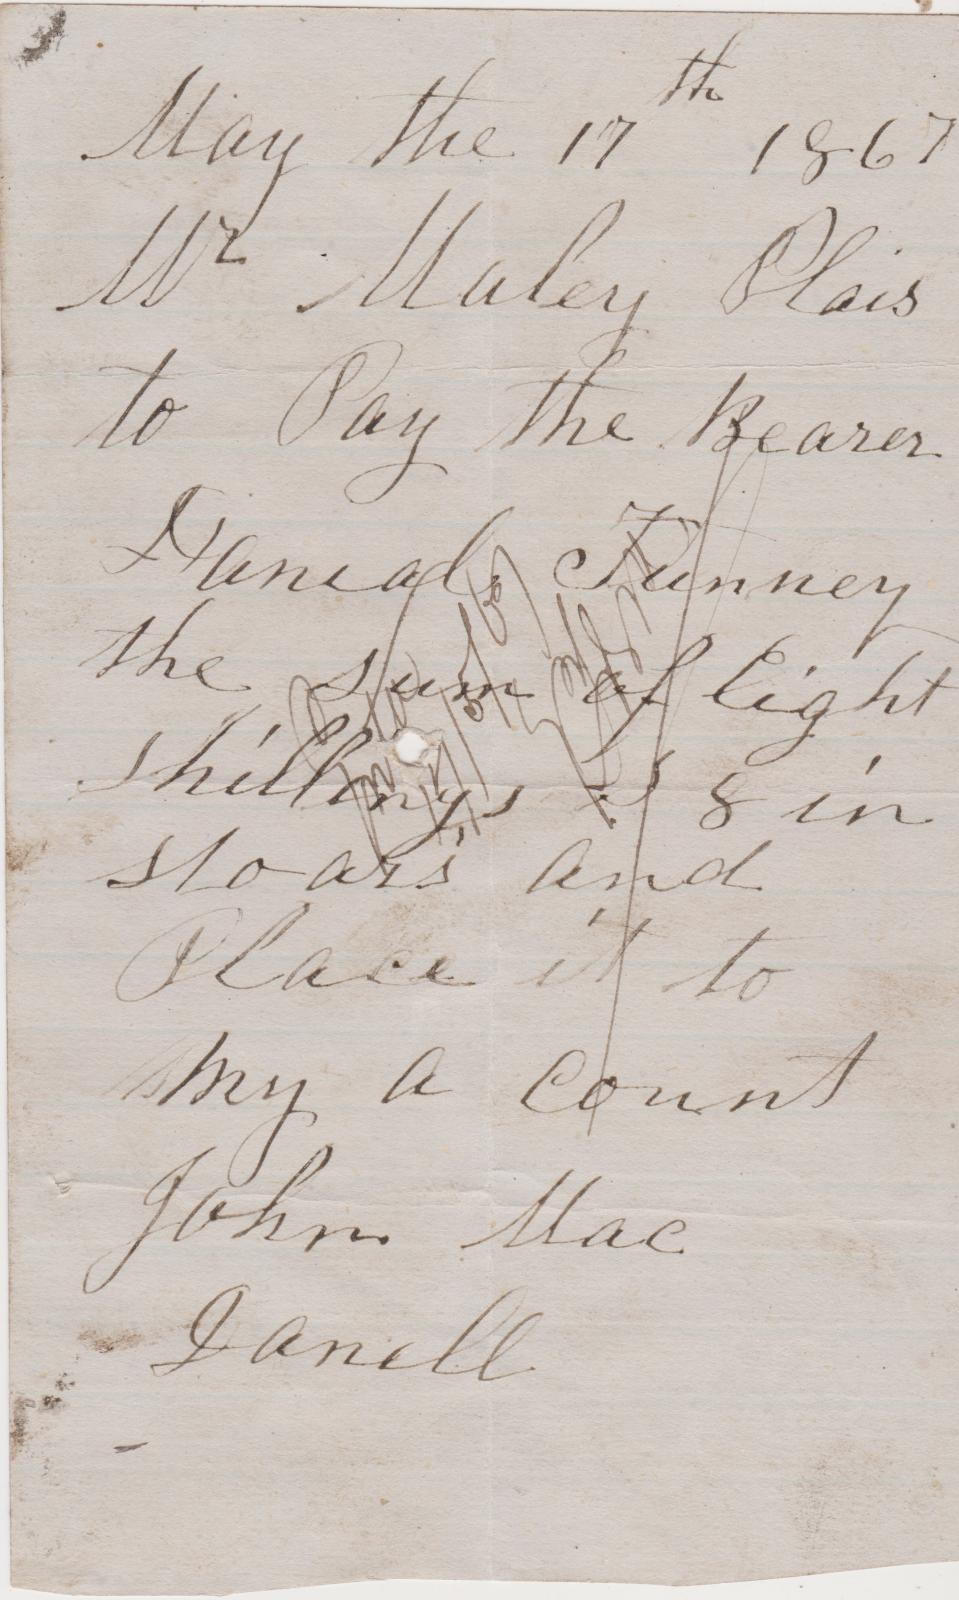 May the 17th 1867
Mr Maley Plais
to Pay the Bearer
Danial Tunney
the sum of Eight
shillings 8 in
stoars and
Place it to
my a count
John Mac
Danell